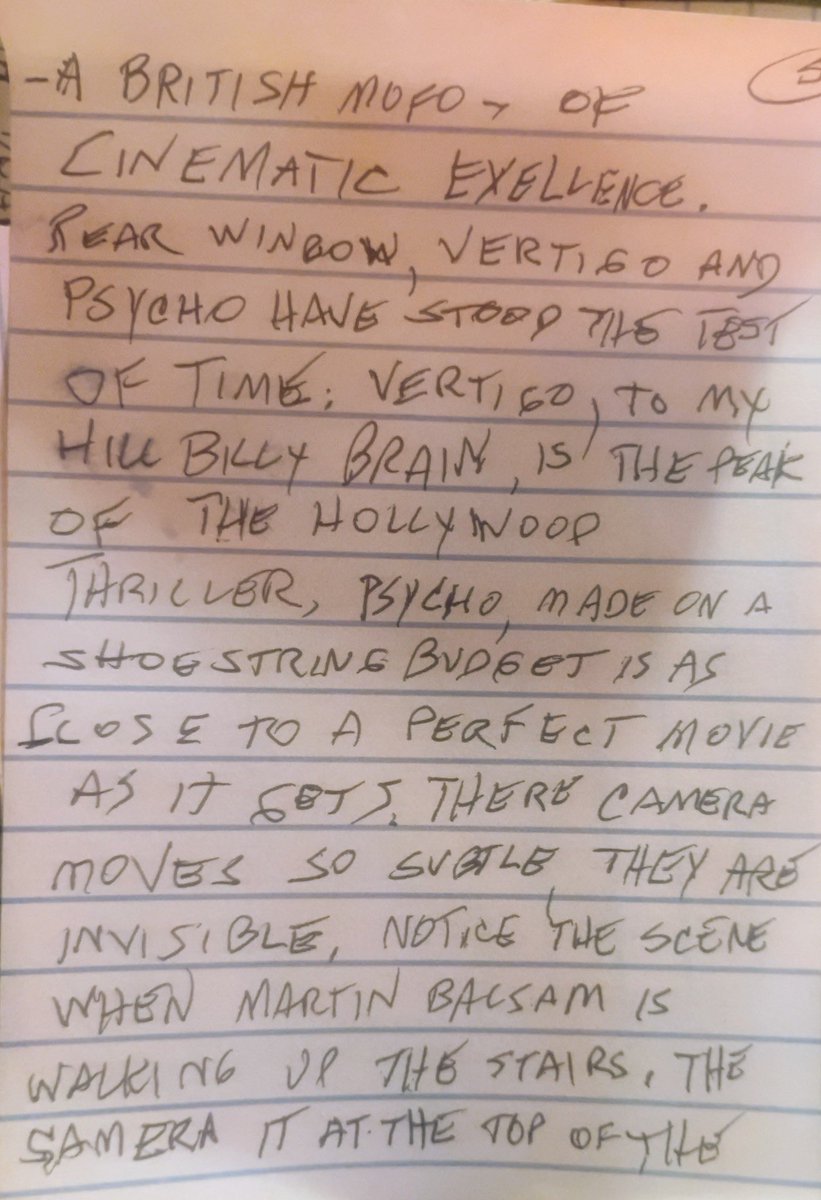 -A BRITISH MOFO - OF
CINEMATIC EXELLENCE.
REAR WINDOW, VERTIGO AND
PSYCHO HAVE STOOD THE TEST
OF TIME; VERTIGO, TO MY
HILLBILLY BRAIN, IS THE PEAK
OF THE HOLLYWOOD
THRILLER, PSYCHO, MADE ON A
SHOESTRING BUDGET IS AS
CLOSE TO A PERFECT MOVIE
AS IT GETS. THERE CAMERA
MOVES SO SUBTLE, THEY ARE
INVISIBLE, NOTICE THE SCENE
WHEN MARTIN BALSAM IS
WALKING UP THE STAIRS. THE
CAMERA IT AT THE TOP OF THE